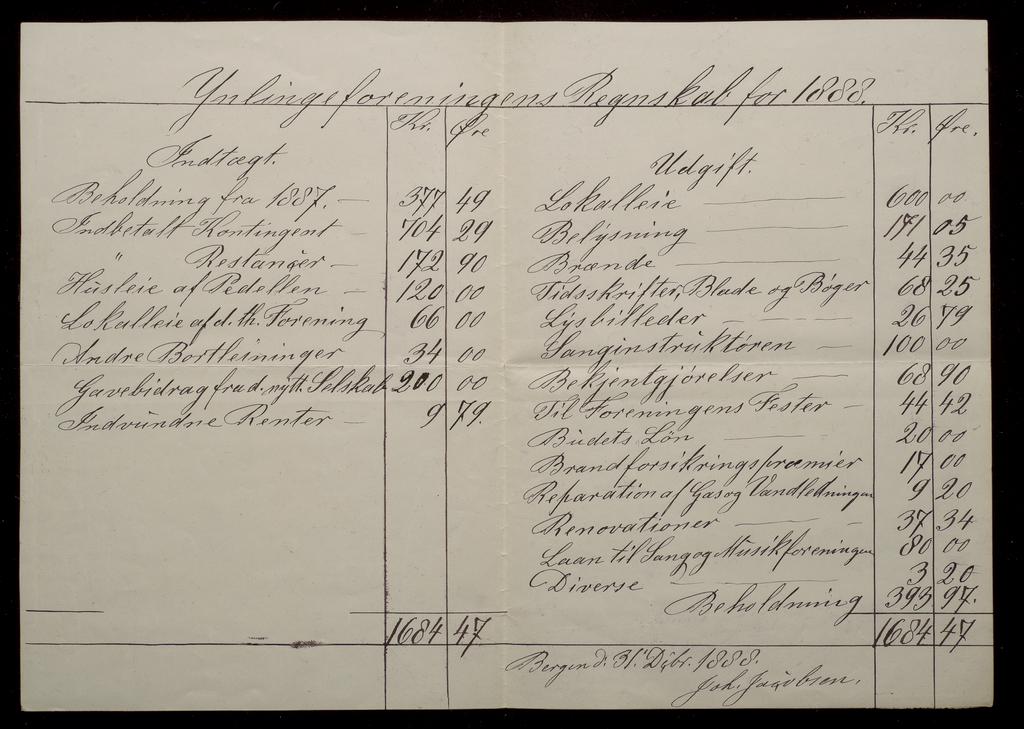 Ynlingeforeningens Regnskab for 1888.
Kr. Øre
Indtægt.
Beholdning fra 1887. — 377 49
Indbetalt Kontingent — 704 29
" Restanser — 172 90
Husleie af Pedellen — 120 00
Lokalleie af d. th. Forening 66 00
Andre Bortleininger 34 00
Gavebidrag fra d. nytt. Selskab 200 00
Indvundne Renter — 9 79.
1684 47
Kr. Øre.
Udgift.
Lokalleie — 600 00
Belysning — 171 05
Brænde — 44 35
Tidsskrifter, Blade og Bøger 68 25
Lysbilleder — 26 79
Sanginstruktøren — 100 00
Bekjentgjørelser — 68 90
Til Foreningens Fester — 44 42
Budets Løn — 20 00
Brandforsikringspræmier 17 00
Reparation af Gas og Vandledningen 9 20
Renovationer — 37 34
Laan til Sang og Musikforeningen 80 00
Diverse — 3 20
Beholdning 393 97.
1684 47
Bergen d. 31. Dcbr. 1888.
Joh. Jacobsen.